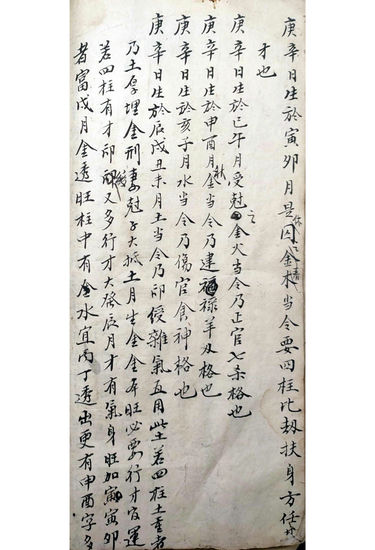 庚辛日生於寅卯月是休囚之金木當令要四柱比劫扶身方任其
才也
庚辛日生於巳午月受尅之金火当令乃正官七杀格也
庚辛日生於申酉月秋金当令乃建禄羊刃格也
庚辛日生於亥子月水当令乃傷官食神格也
庚辛日生於辰戌丑未月土当令乃印綬雜氣五月此土若四柱土重者
乃土厚埋金刑妻尅子大抵土月生金金本旺必要行才官運
若四柱有才印綬又多行才大發辰月才有氣身旺加寅寅卯
者富戌月金透旺柱中有金水宜丙丁透出更有申酉字多